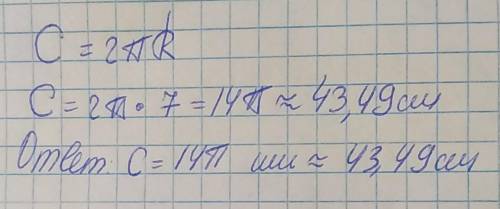 C = 2πR
C = 2π · 7 = 14π ≈ 43,49 см
Ответ: C = 14π или ≈ 43,49 см